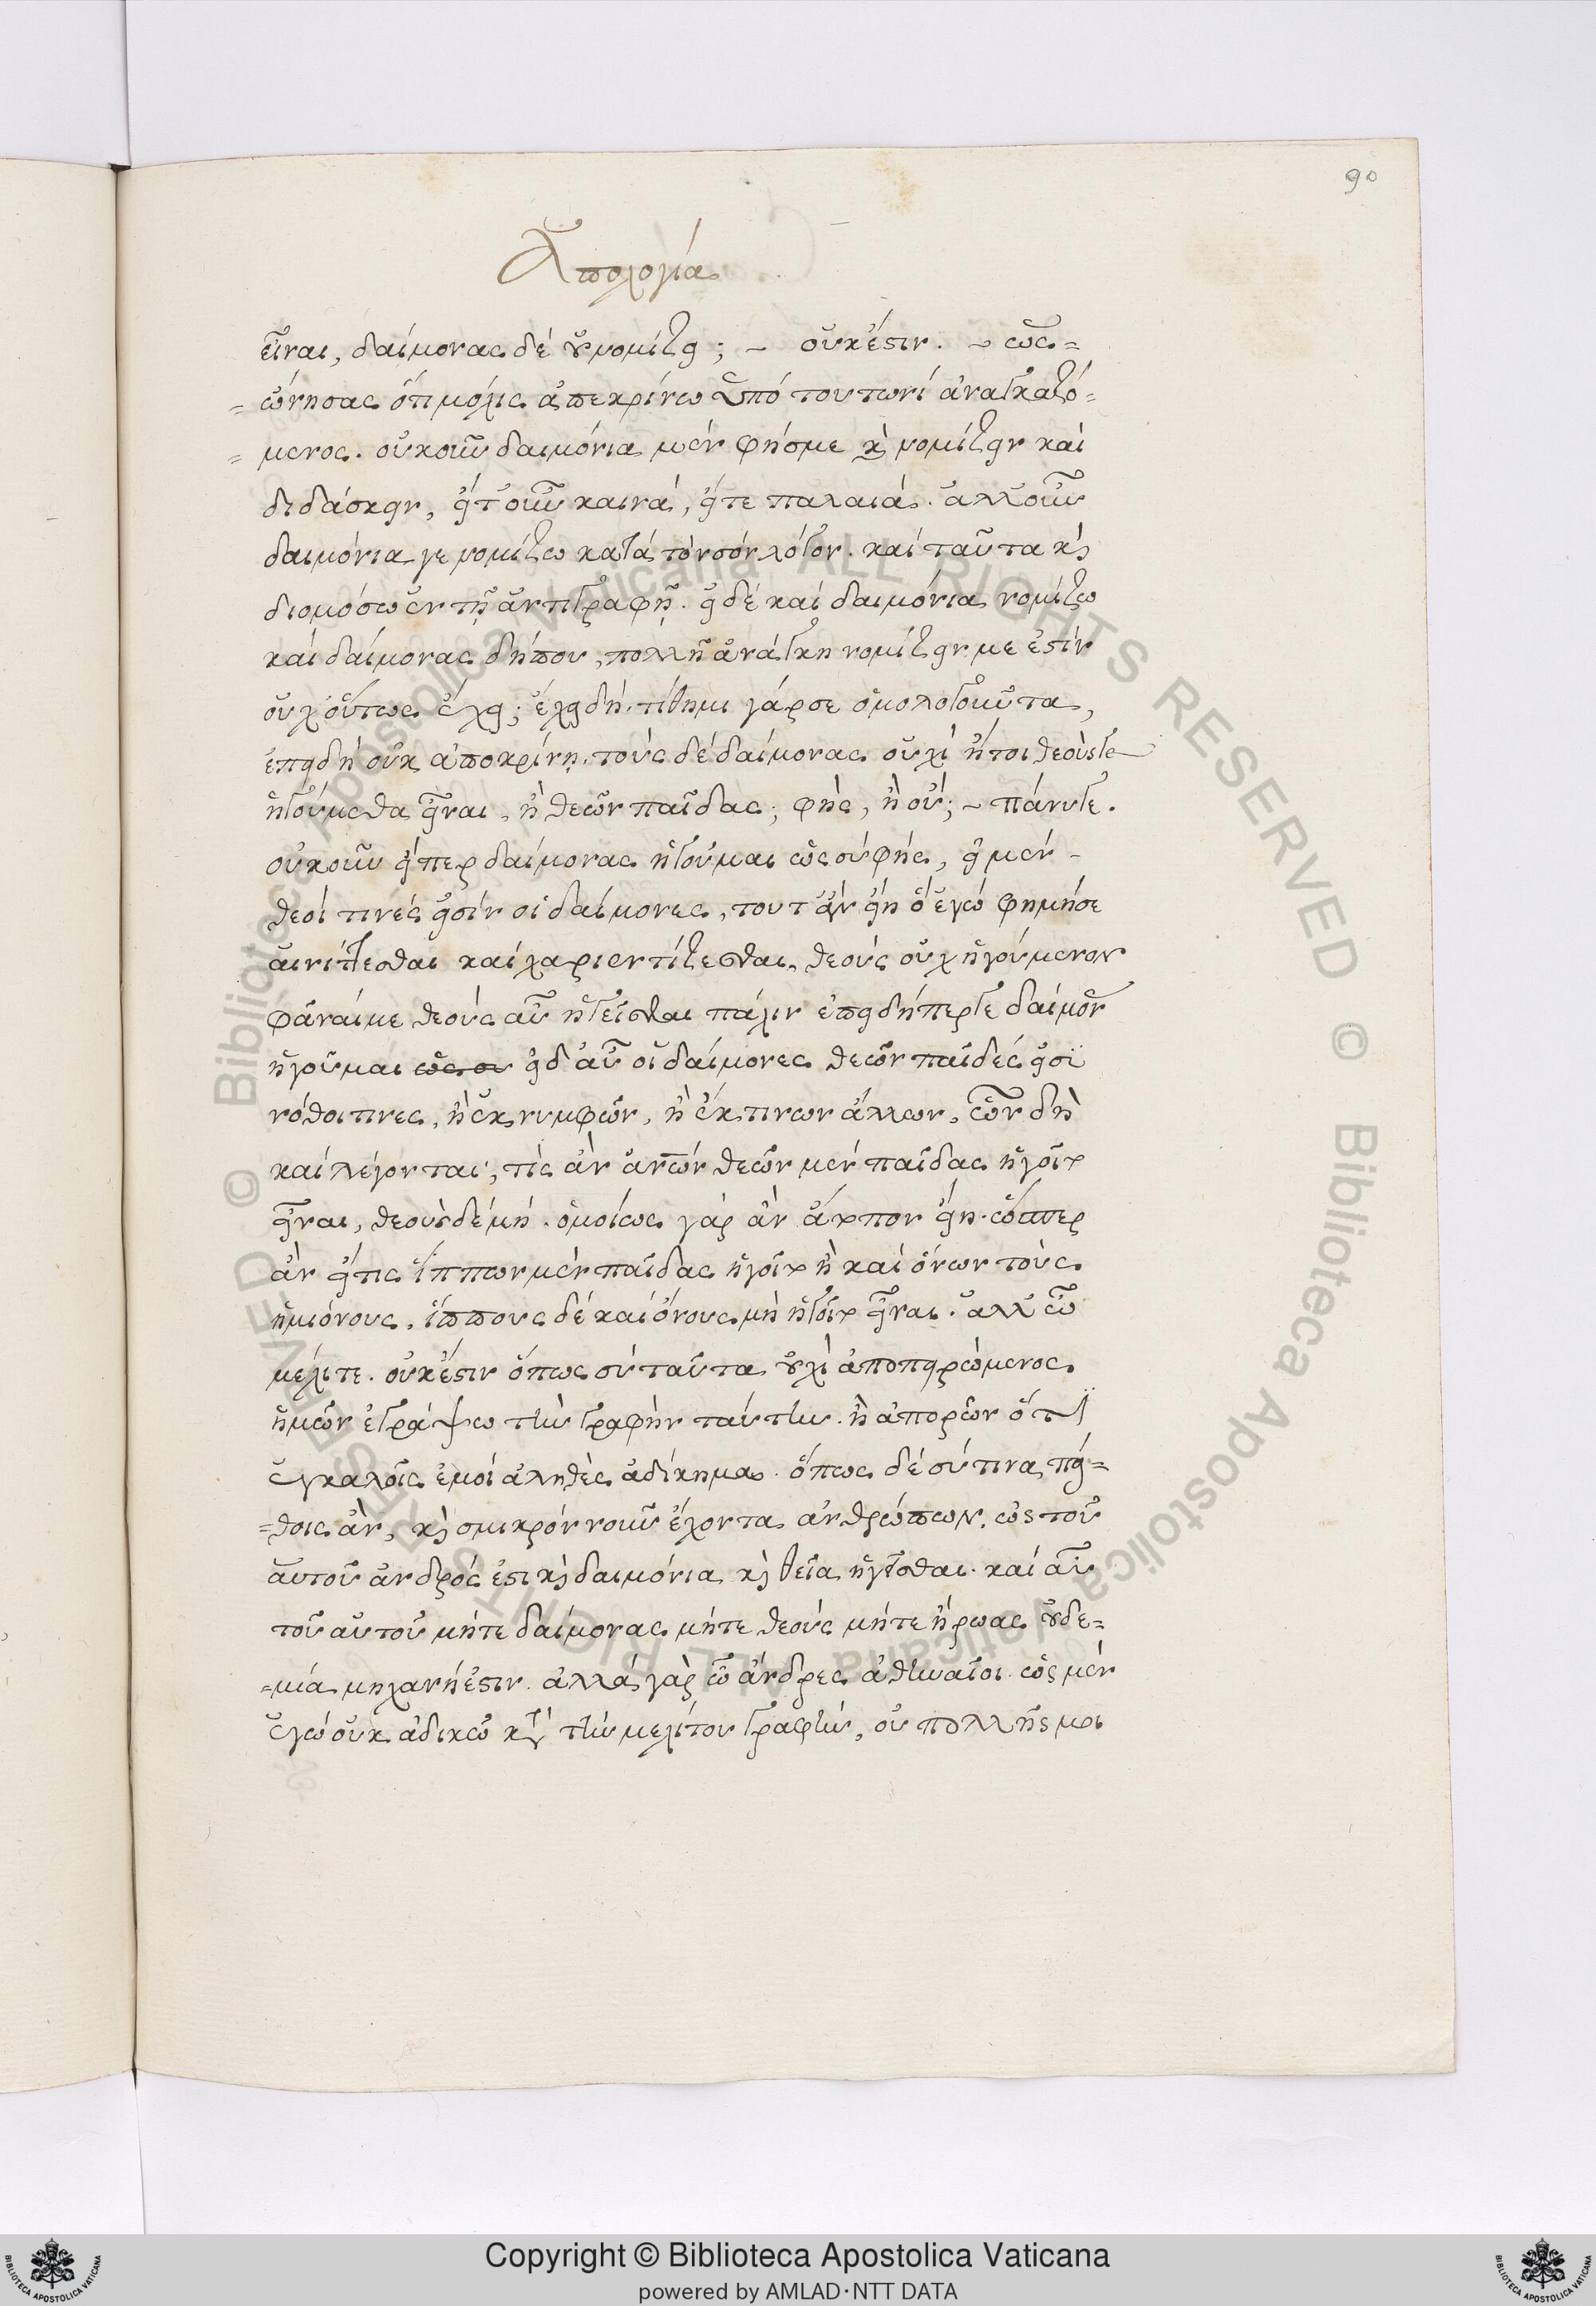 90
Ἀπολογία
εἶναι, δαίμονας δὲ οὐ νομίζει; – οὐκ ἔστιν. – ὡς =
= ὤνησας ὅτι μόλις ἀπεκρίνω ὑπὸ τουτωνὶ ἀναγκαζό=
= μενος. οὐκοῦν δαιμόνια μέν φήσμε καὶ νομίζειν καὶ
διδάσκειν, εἴτ' οὖν καινά, εἴτε παλαιά. ἀλλ' οὖν
δαιμόνια γε νομίζω κατά τόν σόν λόγον. καί ταῦτα καὶ
διομόσω ἐν τῇ ἀντιγραφῇ. εἰ δέ καί δαιμόνια νομίζω
καί δαίμονας δήπου, πολλὴ ἀνάγκη νομίζειν με ἐστίν
οὐχ οὕτως ἔχει; ἔχει δή. τίθημι γάρ σε ὁμολογοῦντα,
ἐπειδή οὐκ ἀποκρίνῃ. τούς δέ δαίμονας οὐχί ἤτοι θεούς γε
ἡγούμεθα εἶναι, ἢ θεῶν παῖδας; φῄς, ἢ οὔ; – πάνυ γε.
οὐκοῦν εἴπερ δαίμονας ἡγοῦμαι ὡς σύ φής, εἰ μέν –
θεοί τινές εἰσίν οἱ δαίμονες, τουτ' ἄν εἴη ὅ ἐγώ φημί σε
αἰνίττεσθαι καί χαριεντίζεσθαι, θεούς οὐχ ἡγούμενον
φάναί με θεούς αὖ ἡγεῖσθαι πάλιν ἐπειδήπερ γε δαίμον
ἡγοῦμαι ὡς συ εἰ δ' αὖ οἱ δαίμονες θεῶν παῖδές εἰσϊ
νόθοι τινες, ἢ ἐκ νυμφῶν, ἢ ἐκ τινων ἄλλων, ὧν δὴ
καί λέγονται, τίς ἄν ἀνων θεῶν μέν παῖδας ἡγοῖτο
εἶναι, θεούς δέ μή. ὁμοίως γάρ ἂν ἄτοπον εἴη. ὥσπερ
ἄν εἴ τις ἵππων μέν παῖδας ἡγοῖτο ἢ καί ὄνων τούς
ἡμιόνους, ἵππους δέ καί ὄνους μὴ ἡγοῖτο εἶναι. ἀλλ' ὦ
μέλιτε. οὐκ ἔστιν ὅπως σύ ταῦτα οὐχὶ ἀποπειρώμενος
ἡμῶν ἐγράψω τὴν γραφὴν ταύτην. ἢ ἀπορῶν ὅ τι
ἐγκαλοῖς ἐμοί ἀληθές ἀδίκημα. ὅπως δέ σύ τινα πεί=
=θοις ἂν, καὶ σμικρόν νοῦν ἔχοντα ἀνθρώπων, ὡς τοῦ
αὐτοῦ ἀνδρός ἐστι καὶ δαιμόνια καὶ θεῖα ἡγεῖσθαι. καί αὖ
τοῦ αὐτοῦ μήτε δαίμονας μήτε θεούς μήτε ἥρωας οὐδε=
=μία μηχανή ἐστιν. ἀλλά γάρ ὦ ἄνδρες ἀθηναῖοι. ὡς μέν
ἐγώ οὐκ ἀδικῶ κατὰ τήν μελίτου γραφήν, οὐ πολλῆς μοι
Copyright © Biblioteca Apostolica Vaticana
powered by AMLAD·NTT DATA